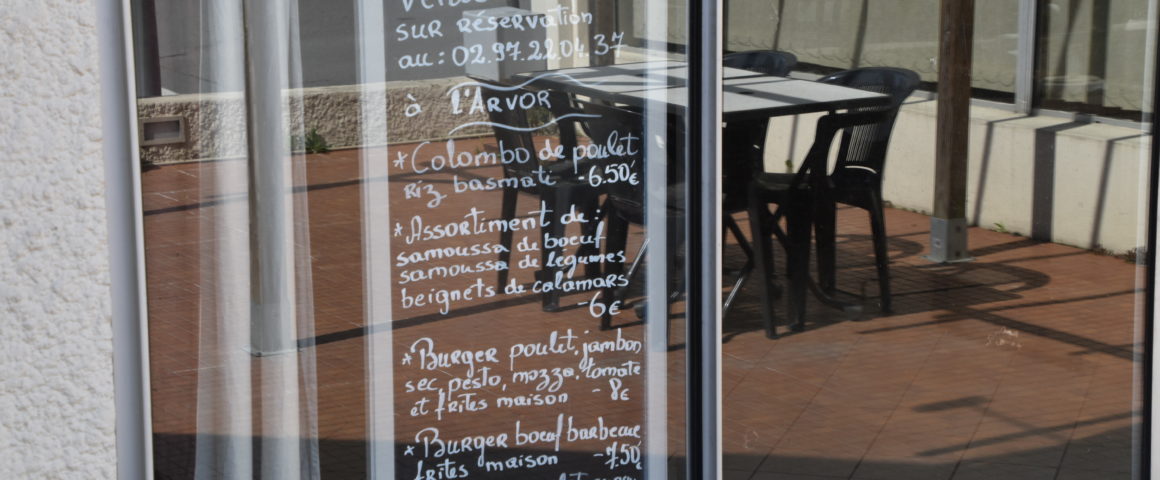 sur réservation
au : 02.97.22.04.37
à L'ARVOR
*Colombo de poulet
Riz basmati -6.50€
*Assortiment de :
samoussa de boeuf
samoussa de légumes
beignets de calamars
-6€
*Burger poulet, jambon
sec, pesto, mozza, tomate
et frites maison - 8€
*Burger boeuf barbecue
frites maison -7.50€